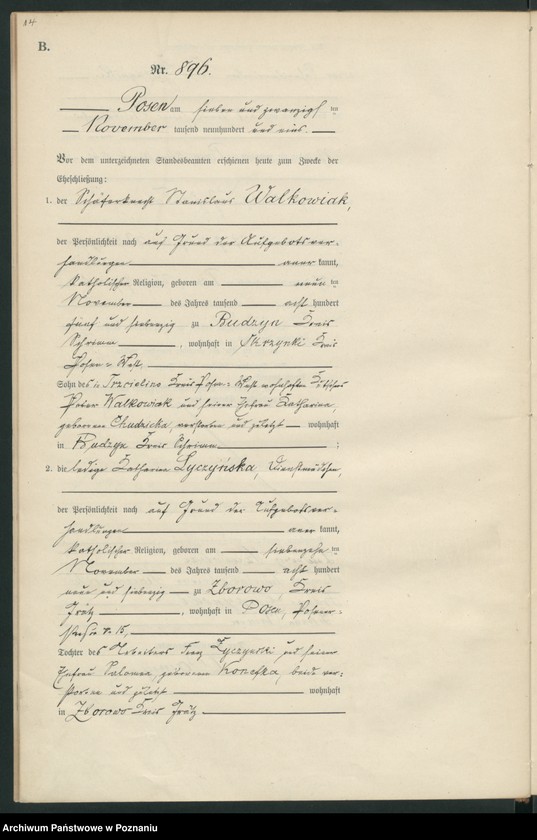 14
B.
Nr. 896.
Posen am sieben und zwanzigsten
November tausend neunhundert und eins
Vor dem unterzeichneten Standesbeamten erschienen heute zum Zwecke der
Eheschließung:
1. der Schäferknecht Stanislaus Walkowiak,
der Persönlichkeit nach auf Grund der Aufgebotsver-
handlungen anerkannt,
katholischer Religion, geboren am neunten
November des Jahres tausend acht hundert
fünf und siebenzig zu Budzyn Kreis
Schrimm, wohnhaft in Skrzynki Kreis
Posen-West,
Sohn des in Trzcielino Kreis Posen-West wohnhaften
Peter Walkowiak und seiner Ehefrau Katharina,
geborenen Chudzicka, verstorben und zuletzt wohnhaft
in Budzyn Kreis Schrimm;
2. die ledige Katharina Lyczyńska, Dienstmädchen,
der Persönlichkeit nach auf Grund der Aufgebotsver-
handlungen anerkannt,
katholischer Religion, geboren am siebenzehnten
November des Jahres tausend acht hundert
neun und siebenzig zu Zborowo, Kreis
Grätz, wohnhaft in Posen, Posener-
straße No 15,
Tochter des Arbeiters Franz Lyczynski und seiner
Ehefrau Salomea, geborenen Konofka, beide ver-
storben und zuletzt wohnhaft
in Zborowo Kreis Grätz
Archiwum Państwowe w Poznaniu